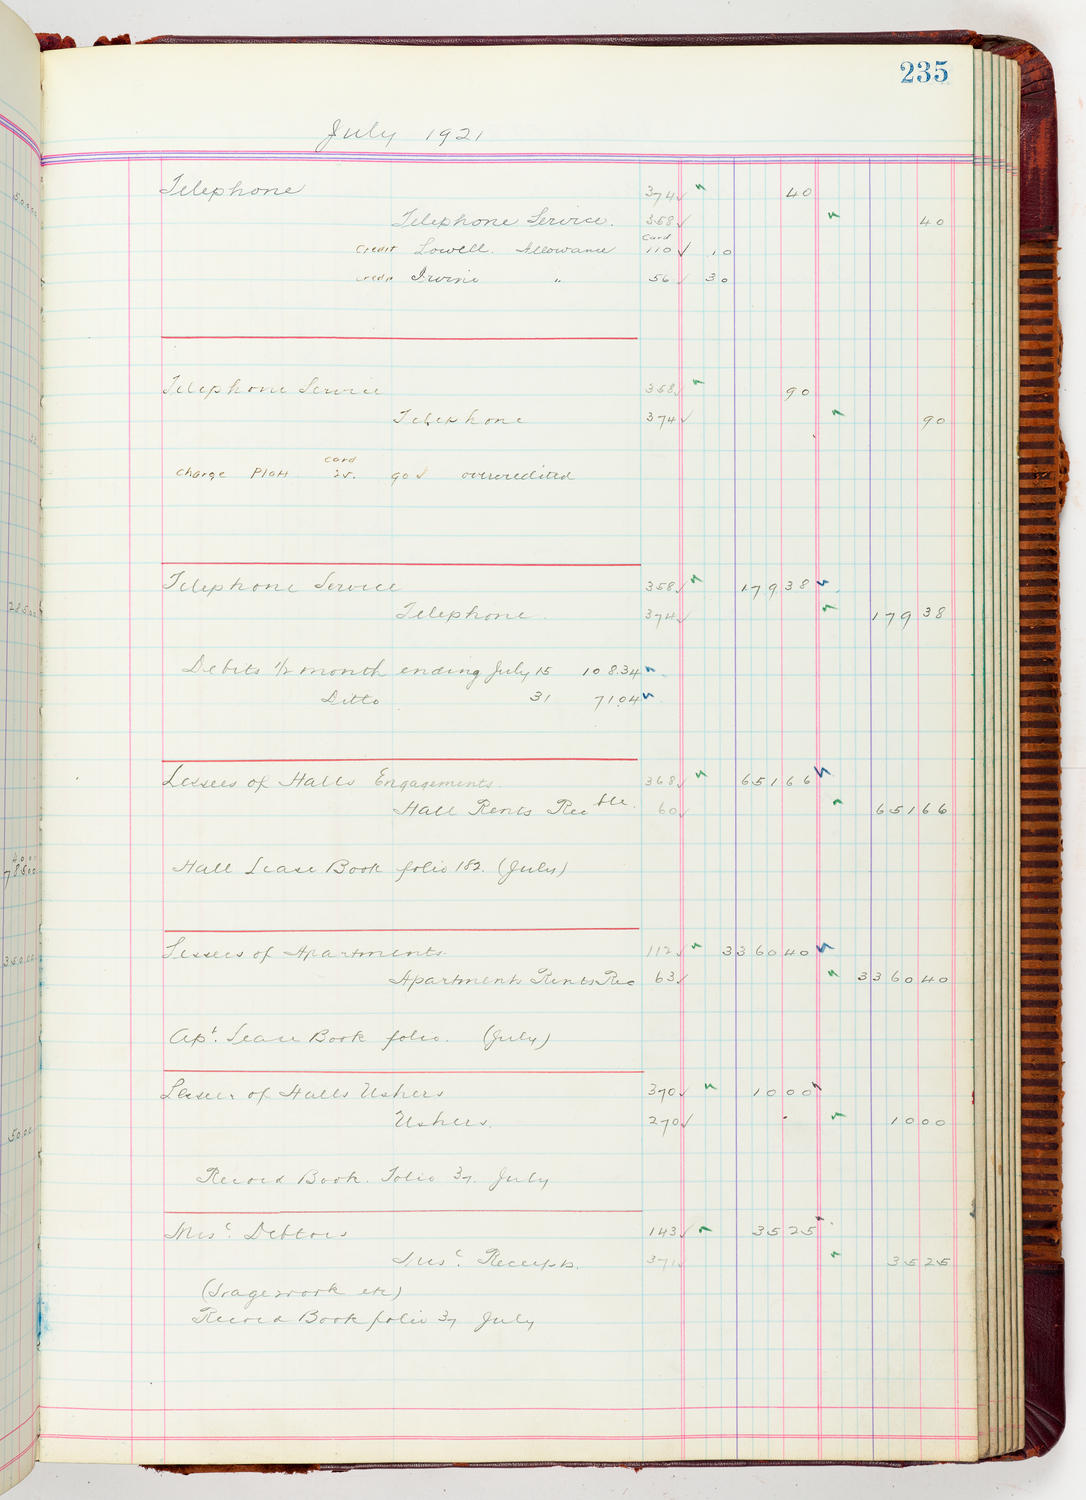 235
July 1921
Telephone 374 40
Telephone Service. 358 40
Card
Credit Lowell. Allowance 110 10
Credit Irvine " 56 30
Telephone Service 358 90
Telephone 374 90
card
Charge Platt 25. 90 overcredited
Telephone Service 358 179 38
Telephone. 374 179 38
Debits 1/2 month ending July 15 108.34
Ditto 31 71.04
Lessees of Halls Engagements. 368 651 66
Hall Rents Rec ble. 60 651 66
Hall Lease Book folio 182. (July)
Lessees of Apartments. 112 3360 40
Apartment Rents Rec 63 3360 40
Apt. Lease Book folio. (July)
Lessees of Halls Ushers 370 10 00
Ushers. 270 10 00
Record Book. Folio 37. July
Misc. Debtors 143 35 25
Misc. Receipts. 371 35 25
(Stagework etc)
Record Book folio 37 July